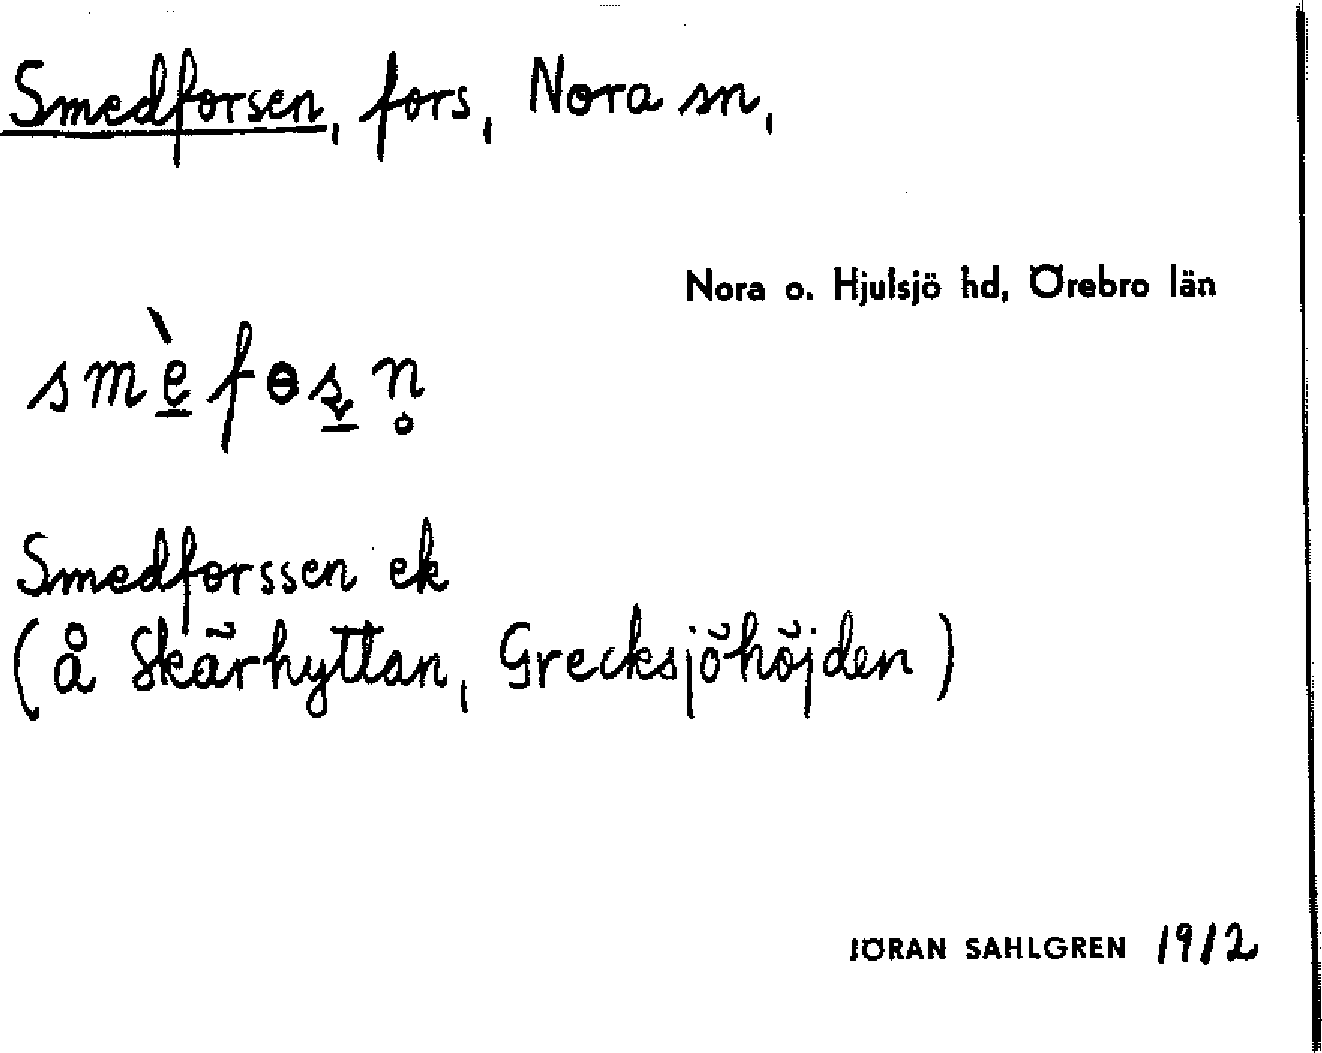 Smedforsen, fors, Nora sn,
Nora o. Hjulsjö hd, Örebro län
smè̲fɵs̬̲n̥
Smedforssen ek
(å Skärhyttan, Grecksjöhöjden)
JÖRAN SAHLGREN 1912